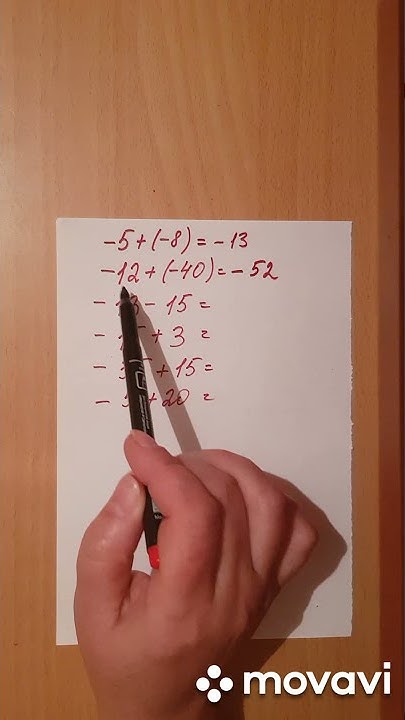 -5+(-8)=-13
-12+(-40)=-52
- 15 =
- + 3 =
- + 15 =
- + 20 =
movavi